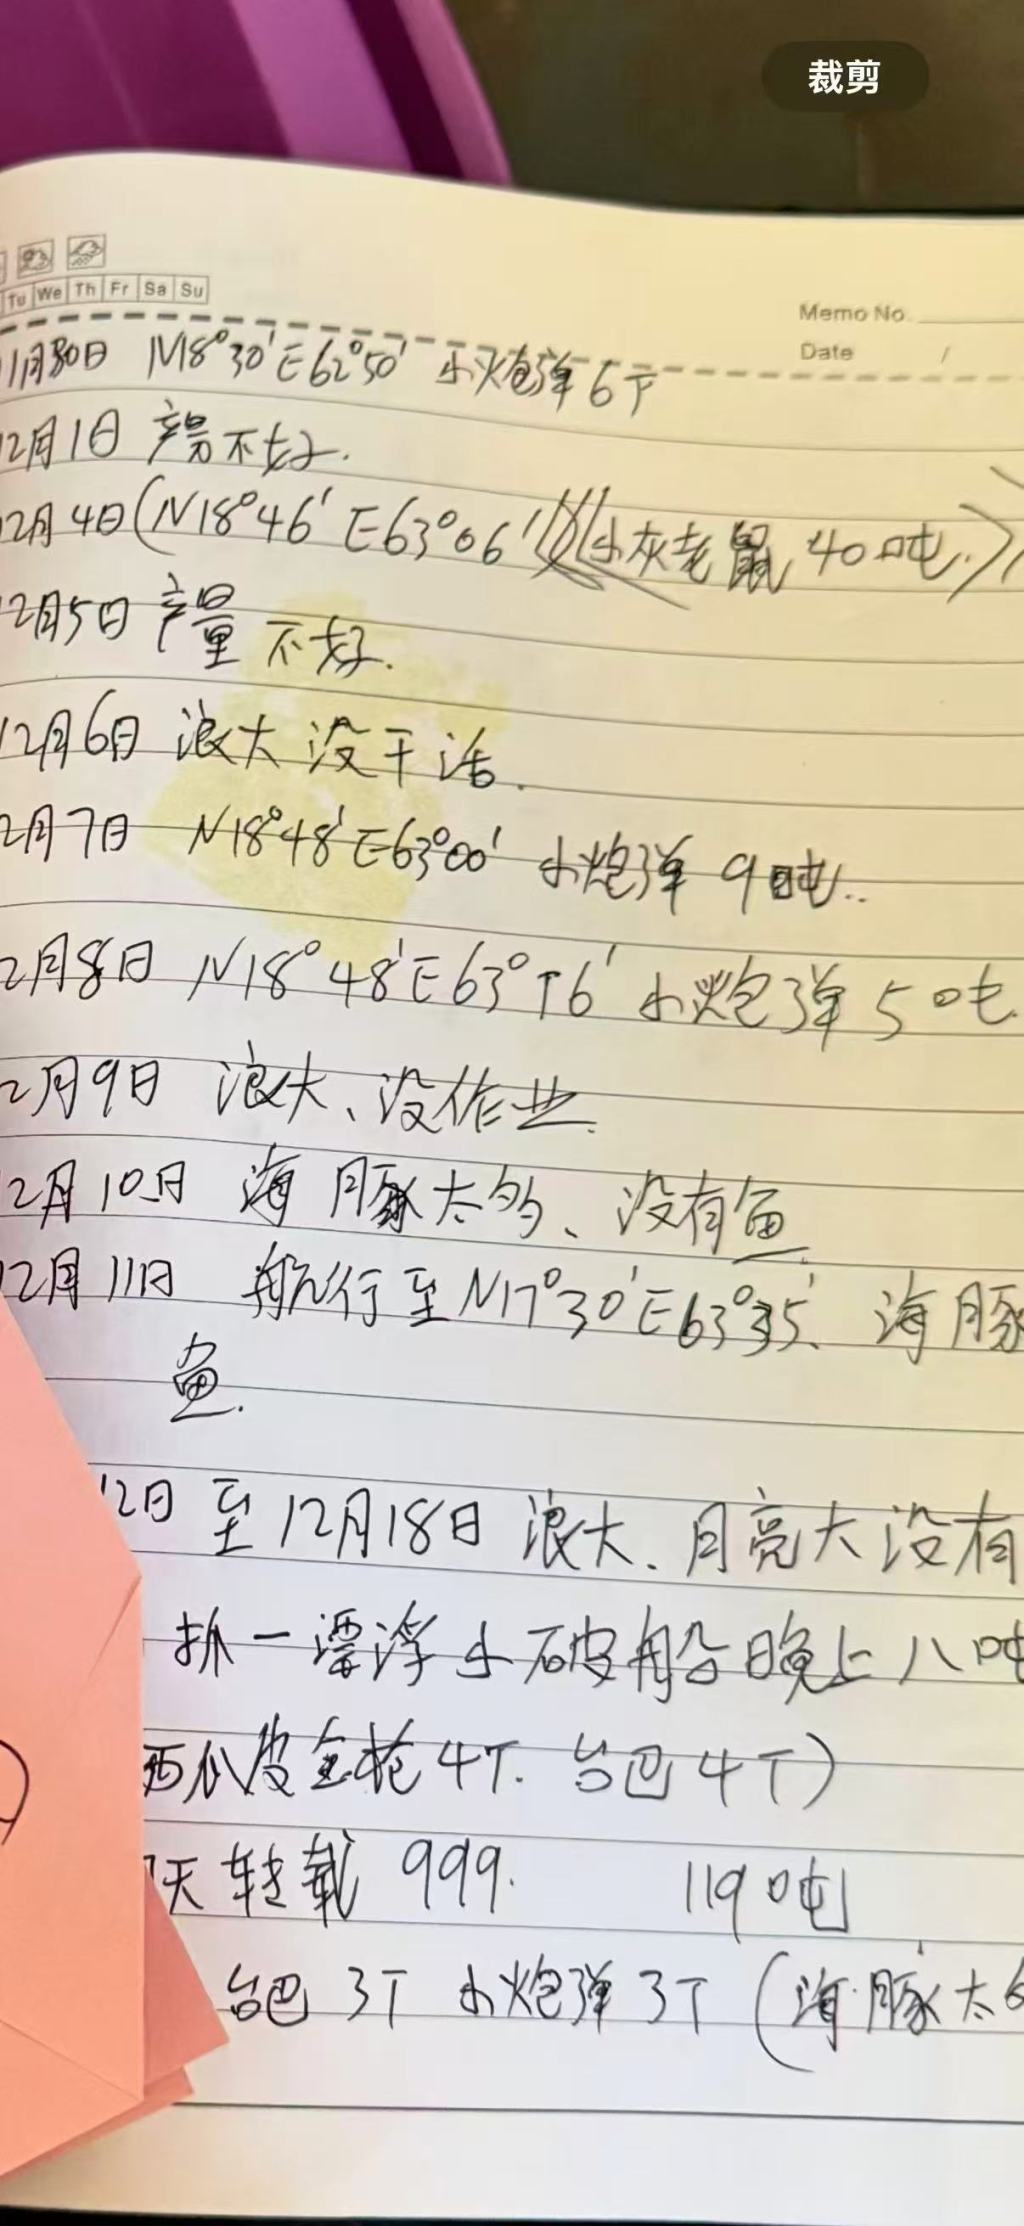 裁剪
Tu We Th Fr Sa Su
Memo No.
Date /
11月30日 N18°30′E62°50′ 小炮弹6T
12月1日 产量不好.
12月4日(N18°46′E63°06′ 小灰老鼠40吨.)
12月5日 产量不好.
12月6日 浪大没干活.
2月7日 N18°48′E63°00′ 小炮弹9吨..
2月8日 N18°48′E63° 6′ 小炮弹5吨.
2月9日 浪大、没作业.
12月10日 海豚太多、没有鱼.
12月11日 航行至N17°30′E63°35′、海豚
鱼.
12日至12月18日浪大、月亮大没有
抓一漂浮小破船晚上八吨
西瓜皮金枪4T. 台巴4T)
天转载999. 119吨
台巴3T 小炮弹3T(海豚太